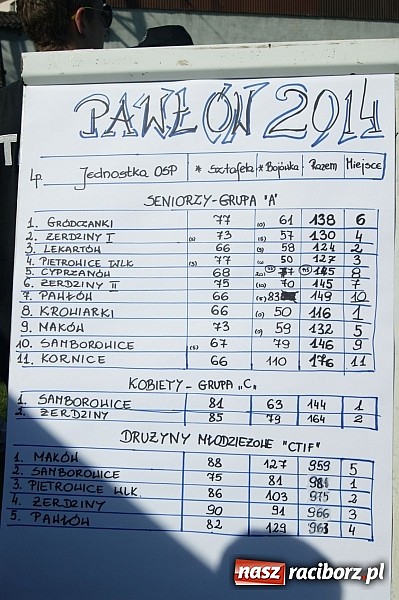 PAWŁÓW 2014
Lp. Jednostka OSP * Sztafeta * Bojówka Razem Miejsce
SENIORZY-GRUPA "A"
1. GRÓDCZANKI 77 (0) 61 138 6
2. ŻERDZINY I 73 57 130 4
3. LEKARTÓW 66 58 124 2
4. PIETROWICE WLK. 77 50 127 3
5. CYPRZANÓW 68 77 145 8
6. ŻERDZINY II 75 (10) 70 145 7
7. PAWŁÓW 66 (5) 83 149 10
8. KROWIARKI 66 (0) 50 116 1
9. MAKÓW 73 (0) 59 132 5
10. SAMBOROWICE (5) 67 79 146 9
11. KORNICE 66 110 176 11
KOBIETY-GRUPA „C"
1. SAMBOROWICE 81 63 144 1
2. ŻERDZINY 85 79 164 2
DRUŻYNY MŁODZIEŻOWE "CTIF"
1. MAKÓW 88 127 959 5
2. SAMBOROWICE 75 81 981 1
3. PIETROWICE WLK. 86 103 975 2
4. ŻERDZINY 90 91 966 3
5. PAWŁÓW 82 129 963 4
nasz raciborz.pl